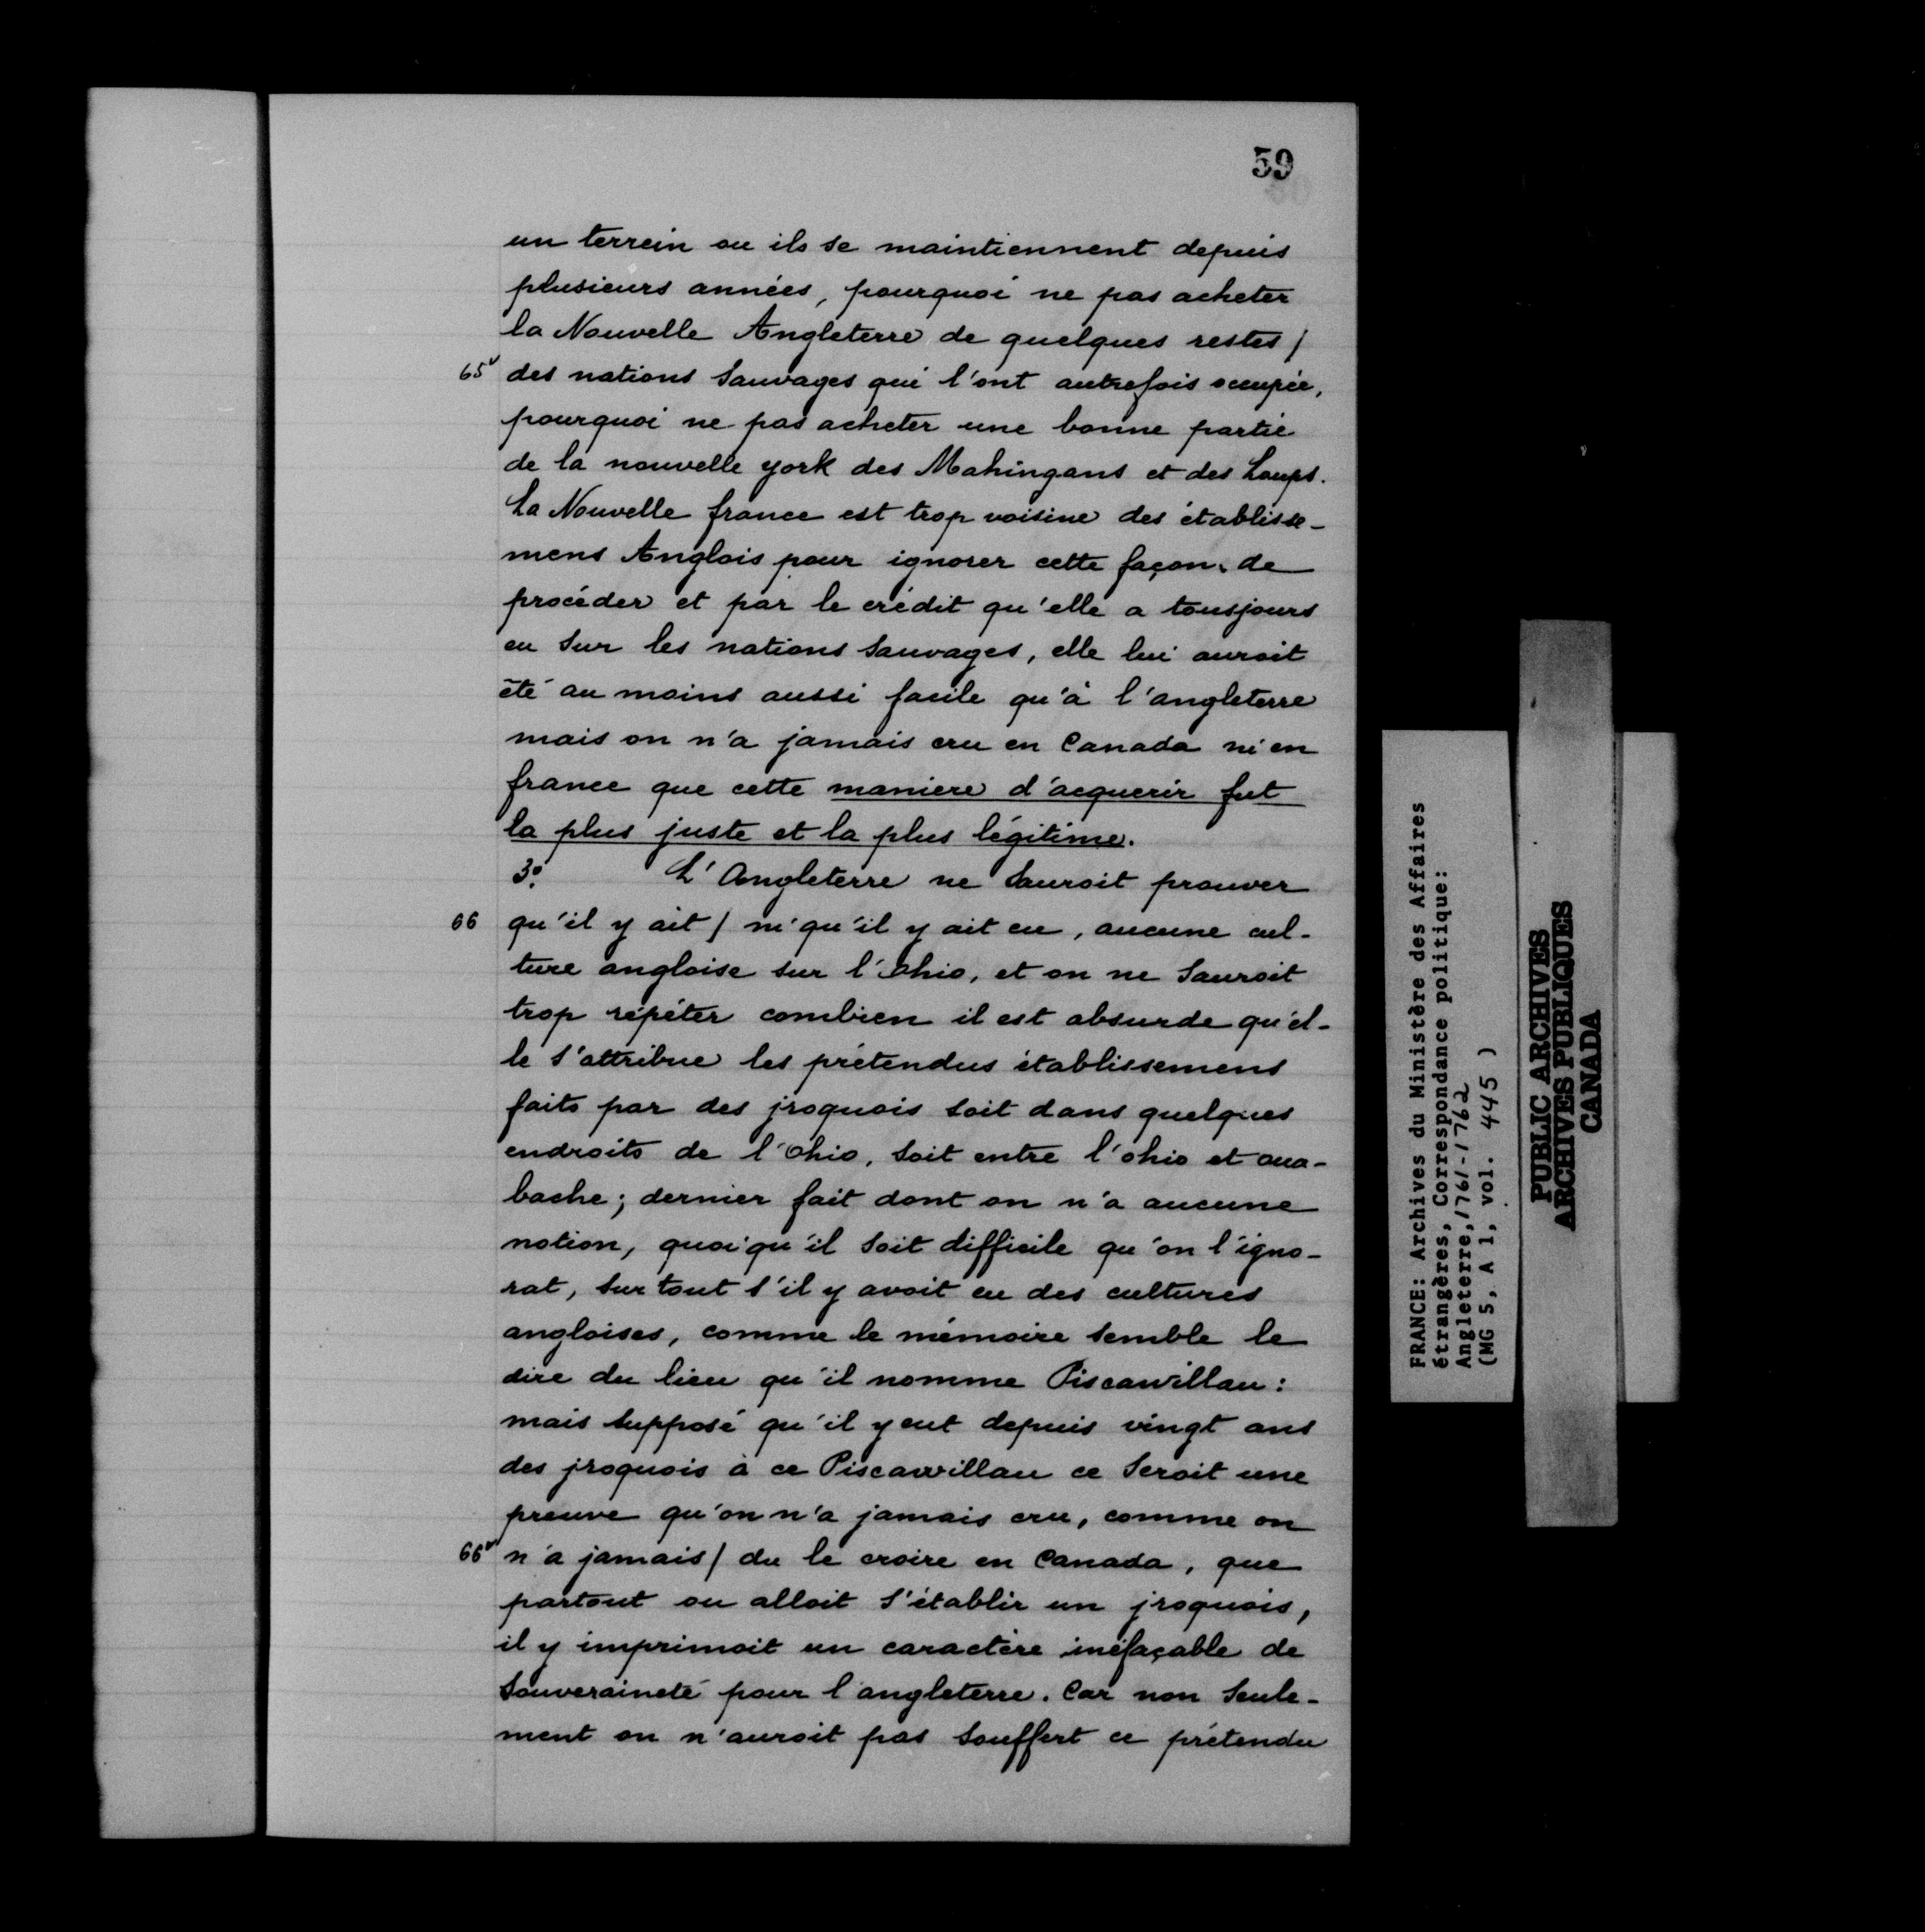 59
un terrein ou ils se maintiennent depuis
plusieurs années, pourquoi ne pas acheter
la Nouvelle Angleterre de quelques restes /
65v des nations Sauvages qui l'ont autrefois occupée,
pourquoi ne pas acheter une bonne partie
de la nouvelle york des Mahingans et des Loups.
La Nouvelle france est trop voisine des établisse-
mens Anglois pour ignorer cette façon de
procéder et par le crédit qu'elle a tousjours
eu Sur les nations Sauvages, elle lui auroit
été au moins aussi facile qu'à l'angleterre
mais on n'a jamais cru en Canada ni en
france que cette maniere d'acquerir fut
la plus juste et la plus légitime.
3º. L'Angleterre ne Sauroit prouver
66 qu'il y ait / ni qu'il y ait eu, aucune cul-
ture angloise sur l'Ohio, et on ne Sauroit
trop répéter combien il est absurde qu'el-
le s'attribue les prétendus établissemens
faits par des jroquois soit dans quelques
endroits de l'Ohio, soit entre l'ohio et oua-
bache; dernier fait dont on n'a aucune
notion, quoiqu'il soit difficile qu'on l'igno-
rat, sur tout s'il y avoit eu des cultures
angloises, comme le mémoire semble le
dire du lieu qu'il nomme Piscawillau:
mais supposé qu'il y eut depuis vingt ans
des jroquois à ce Piscawillau ce Seroit une
preuve qu'on n'a jamais cru, comme on
66v n'a jamais / du le croire en Canada, que
partout ou alloit s'établir un jroquois,
il y imprimoit un caractère inéfaçable de
Souveraineté pour l'angleterre. Car non Seule-
ment on n'auroit pas Souffert ce prétendu
FRANCE: Archives du Ministère des Affaires
étrangères, Correspondance politique:
Angleterre, 1761-1762
(MG 5, A 1, vol. 445 )
PUBLIC ARCHIVES
ARCHIVES PUBLIQUES
CANADA